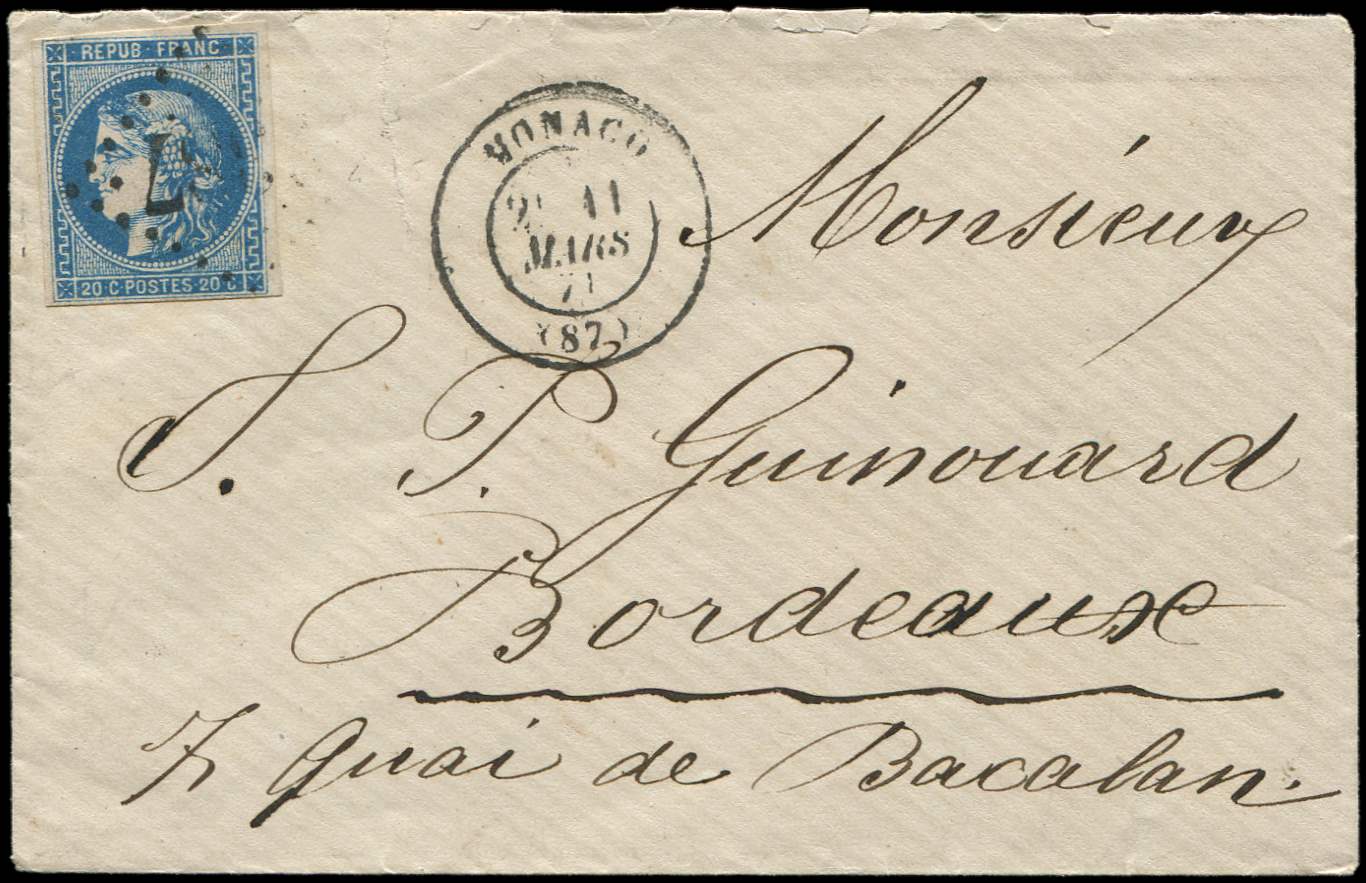 REPUB·FRANC
20·C·POSTES·20·C
MONACO
MARS
71
(87)
Monsieur
S. P. Guinouard
Bordeaux
7 Quai de Bacalan.